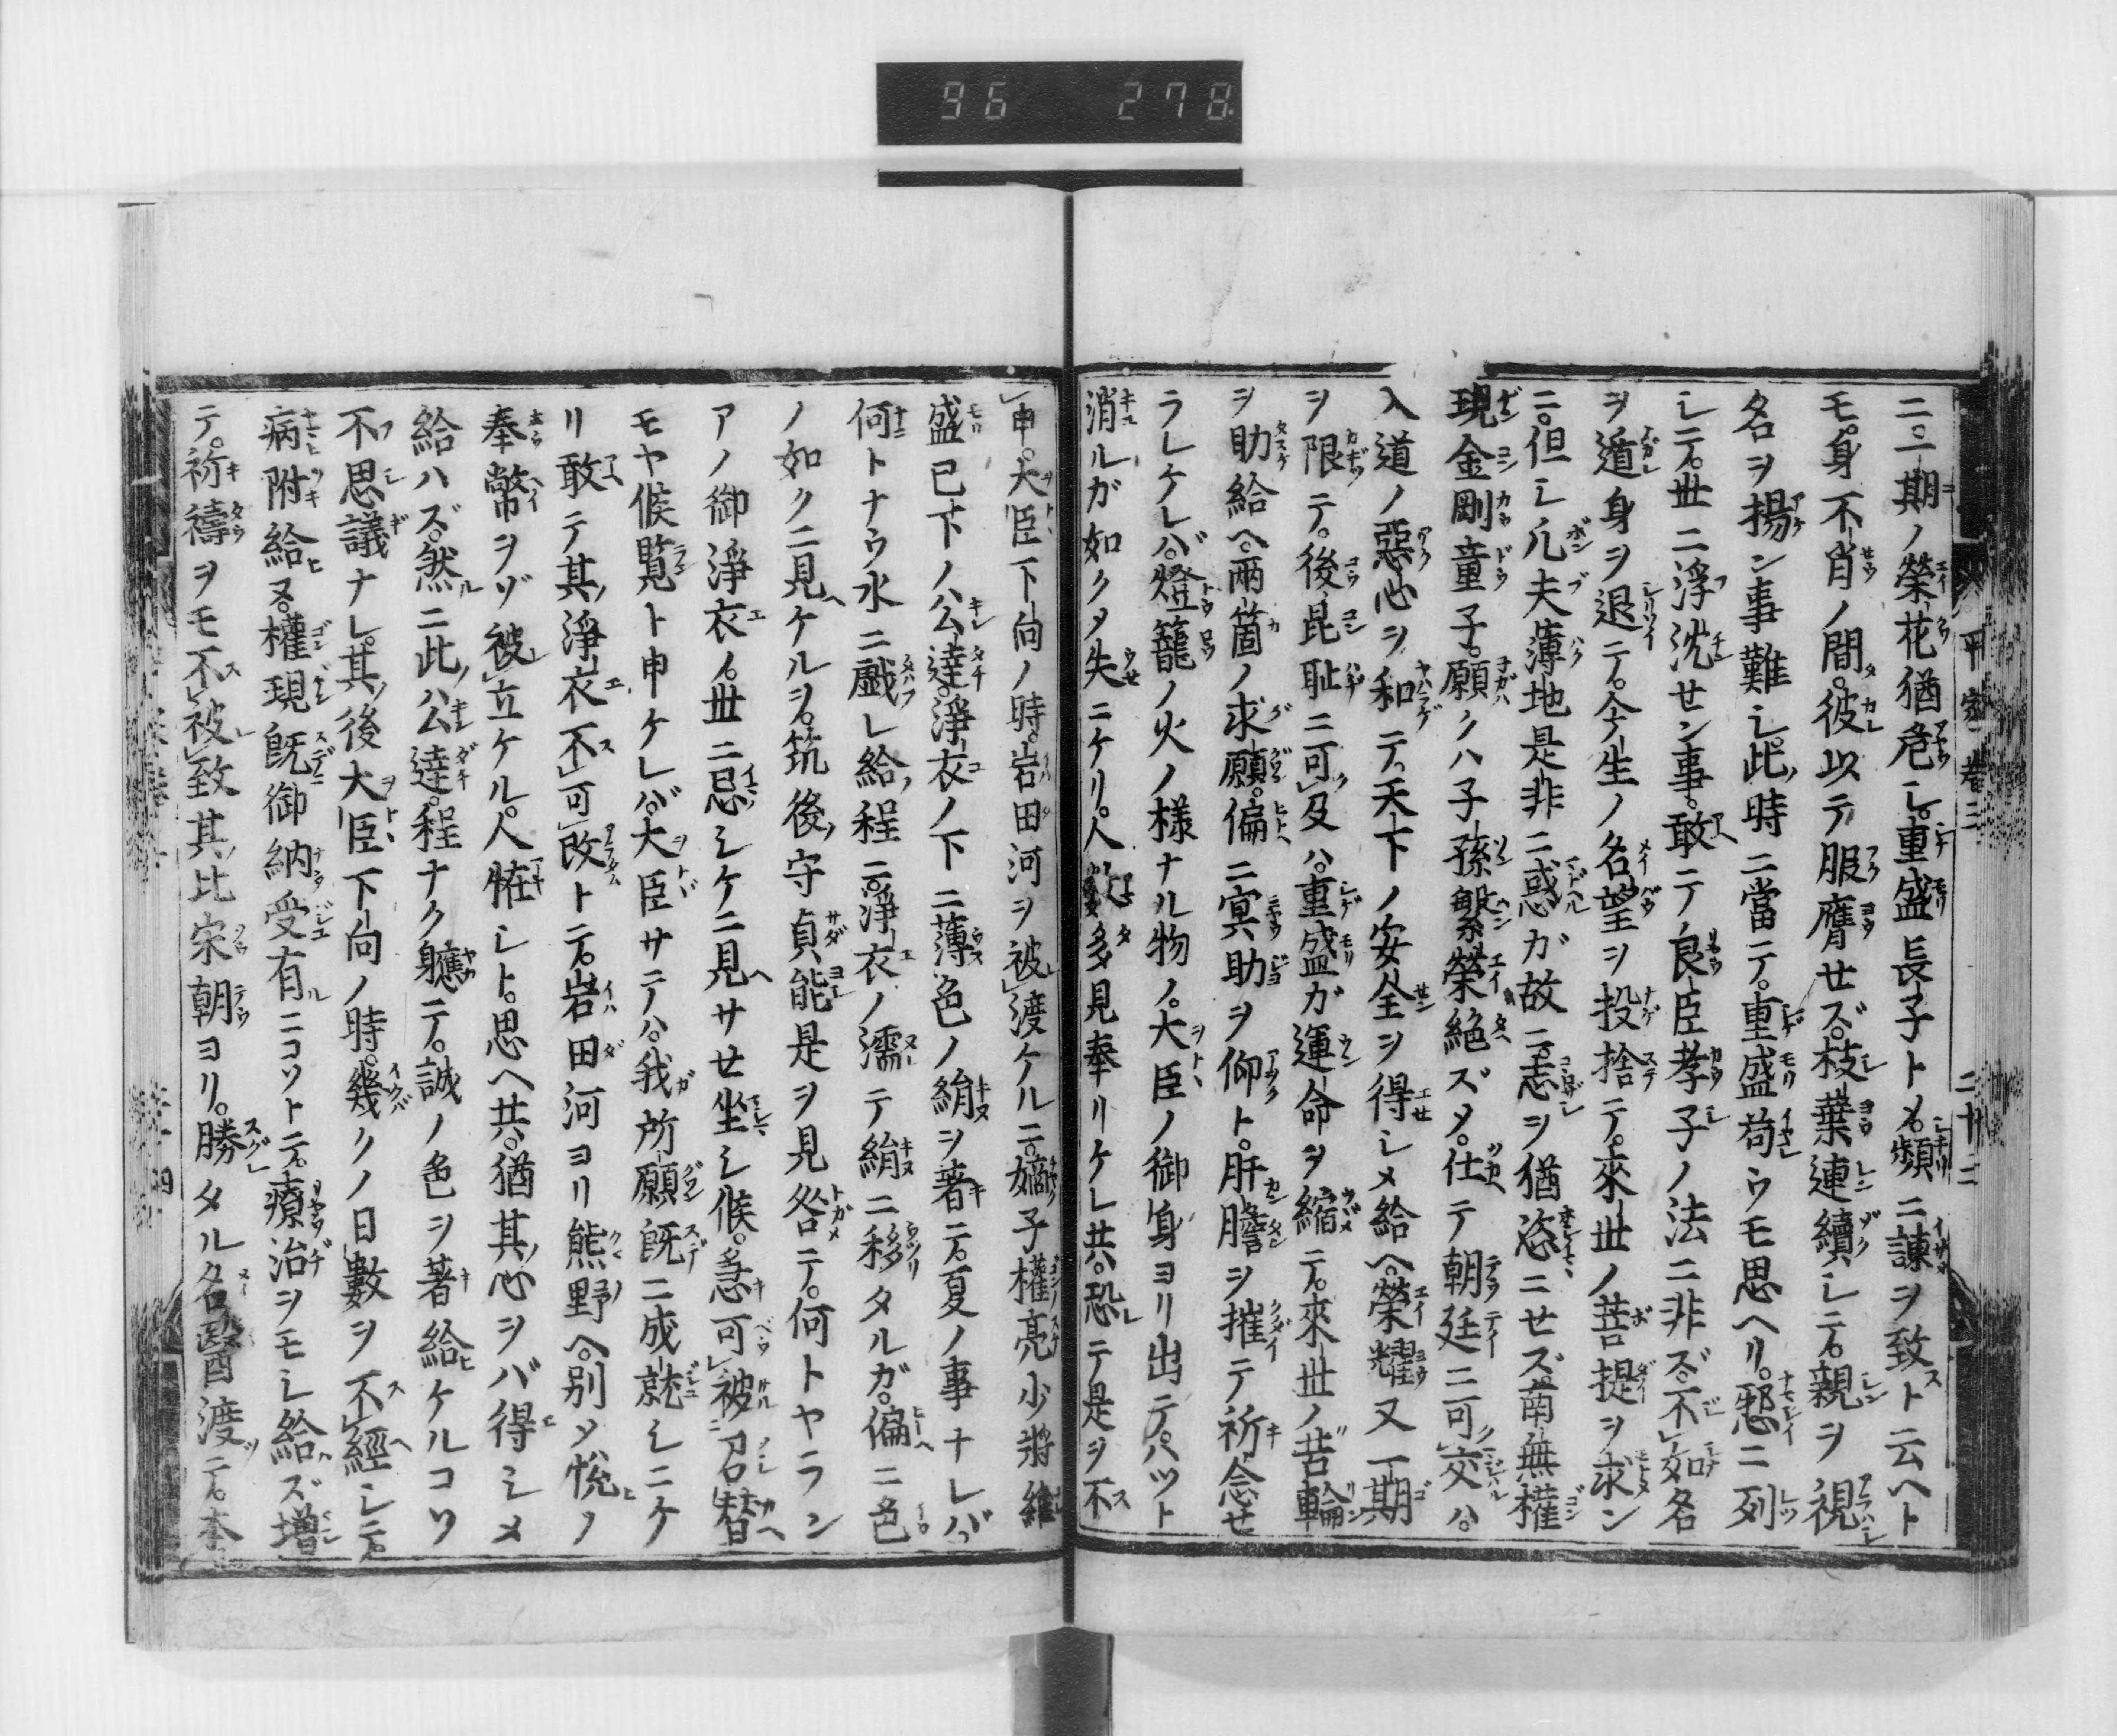 96 278
平家巻三 二十三
ニ。一期ノ榮花猶危シ。重盛長子トメ。頻ニ諫ヲ致ト云ヘト
モ。身不肖ノ間。彼以テ服膺セズ。枝葉連續シテ。親ヲ視
名ヲ揚ン事難シ。此時ニ當テ。重盛苟ウモ思ヘリ。憖ニ列
シテ。世ニ浮沈セン事。敢テノ良臣孝子ノ法ニ非ズ。不如名
ヲ遁身ヲ退テ。今生ノ名望ヲ投捨テ。來世ノ菩提ヲ求ン
ニ。但シ凡夫薄地是非ニ惑ガ故ニ。志ヲ猶恣ニセズ。南無權
現金剛童子。願クハ子孫繁榮絶ズメ。仕テ朝廷ニ可交ハ。
入道ノ惡心ヲ和テ。天下ノ安全ヲ得シメ給ヘ。榮耀又一期
ヲ限テ。後昆耻ニ可及ハ。重盛ガ運命ヲ縮テ。來世ノ苦輪
ヲ助給ヘ。兩箇ノ求願。偏ニ冥助ヲ仰ト。肝膽ヲ摧テ祈念せ
ラレケレバ。燈籠ノ火ノ様ナル物ノ。大臣ノ御身ヨリ出テ。ハツト
消ルガ如クメ失ニケリ。人數多見奉リケレ共。恐テ是ヲ不
申。大臣下向ノ時。岩田河ヲ被渡ケルニ。嫡子權亮少將維
盛已下ノ公達。淨衣ノ下ニ薄色ノ絹ヲ著テ。夏ノ事ナレバ。
何トナウ水ニ戯レ給程ニ。淨衣ノ濡テ絹ニ移タルガ。偏ニ色
ノ如クニ見ケルヲ。筑後守貞能是ヲ見咎テ。何トヤラン
アノ御淨衣ノ。世ニ忌シケニ見サセ坐シ候。急可被召替
モヤ候覽ト申ケレバ。大臣サテハ。我所願既ニ成就シニケ
リ敢テ其淨衣不可改トテ。岩田河ヨリ熊野ヘ。別メ悦ノ
奉幣ヲゾ被立ケル。人恠シト。思ヘ共。猶其心ヲバ得シメ
給ハズ。然ニ此公達。程ナク軈テ。誠ノ色ヲ著給ケルコソ
不思議ナレ。其後大臣下向ノ時。幾クノ日數ヲ不經シテ。
病附給ヌ。權現既御納受有ニコソトテ。療治ヲモシ給ズ。増
テ。祈禱ヲモ不被致。其比宋朝ヨリ。勝タル名醫渡テ。本